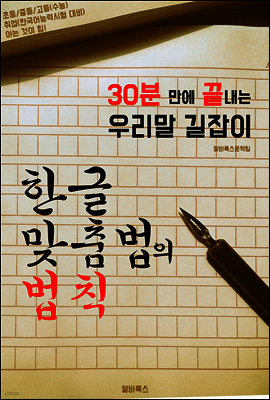 초등/중등/고등(수능)
취업(한국어능력시험 대비)
아는 것이 힘!
30분 만에 끝내는
우리말 길잡이
알바룩스문학팀
한글
맞춤법의
법칙
알바룩스